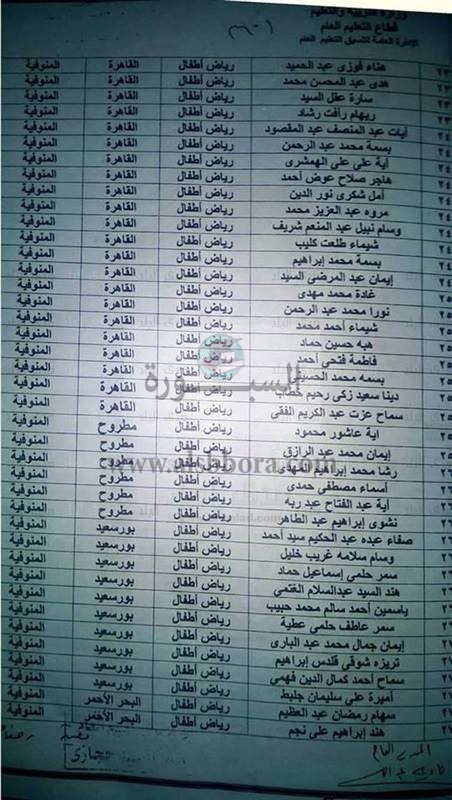 وزارة التربية والتعليم
قطاع التعليم العام
الإدارة العامة لتنسيق التعليم العام
هناء فوزى عبد الحميد رياض أطفال القاهرة المنوفية
هدى عبد المحسن محمد رياض أطفال القاهرة المنوفية
سارة عقل السيد رياض أطفال القاهرة المنوفية
ريهام رأفت رشاد رياض أطفال القاهرة المنوفية
آيات عبد المنصف عبد المقصود رياض أطفال القاهرة المنوفية
بسمة محمد عبد الرحمن رياض أطفال القاهرة المنوفية
آية على على الهمشرى رياض أطفال القاهرة المنوفية
هاجر صلاح عوض أحمد رياض أطفال القاهرة المنوفية
أمل شكرى نور الدين رياض أطفال القاهرة المنوفية
مروه عبد العزيز محمد رياض أطفال القاهرة المنوفية
وسام نبيل عبد المنعم شريف رياض أطفال القاهرة المنوفية
شيماء طلعت كليب رياض أطفال القاهرة المنوفية
بسمة محمد إبراهيم رياض أطفال القاهرة المنوفية
إيمان عبد المرضى السيد رياض أطفال القاهرة المنوفية
غادة محمد مهدى رياض أطفال القاهرة المنوفية
نورا محمد عبد الرحمن رياض أطفال القاهرة المنوفية
شيماء أحمد محمد رياض أطفال القاهرة المنوفية
هبه حسين حماد رياض أطفال القاهرة المنوفية
فاطمة فتحى أحمد رياض أطفال القاهرة المنوفية
بسمه محمد رياض أطفال القاهرة المنوفية
دينا سعيد زكى رحيم خطاب رياض أطفال القاهرة المنوفية
سماح عزت عبد الكريم الفقى رياض أطفال القاهرة المنوفية
آية عاشور محمود رياض أطفال مطروح المنوفية
إيمان محمد عبد الرازق رياض أطفال مطروح المنوفية
رشا محمد إبراهيم رياض أطفال مطروح المنوفية
أسماء مصطفى حمدى رياض أطفال مطروح المنوفية
آية عبد الفتاح عبد ربه رياض أطفال مطروح المنوفية
نشوى إبراهيم عبد الظاهر رياض أطفال مطروح المنوفية
صفاء عبده عبد الحكيم سيد أحمد رياض أطفال بورسعيد المنوفية
وسام سلامه غريب خليل رياض أطفال بورسعيد المنوفية
سمر حلمى إسماعيل حماد رياض أطفال بورسعيد المنوفية
هند السيد عبدالسلام الغتمى رياض أطفال بورسعيد المنوفية
ياسمين أحمد سالم محمد حبيب رياض أطفال بورسعيد المنوفية
سمر عاطف حلمى عطية رياض أطفال بورسعيد المنوفية
إيمان جمال محمد عبد البارى رياض أطفال بورسعيد المنوفية
تريزه شوقى قلدس إبراهيم رياض أطفال بورسعيد المنوفية
سماح أحمد كمال الدين فهمى رياض أطفال بورسعيد المنوفية
أميرة على سليمان جليط رياض أطفال بورسعيد المنوفية
سهام رمضان عبد العظيم رياض أطفال البحر الأحمر المنوفية
هند إبراهيم على نجم رياض أطفال البحر الأحمر المنوفية
السبورة
www.alsbbora.com
المدير العام
حجازى